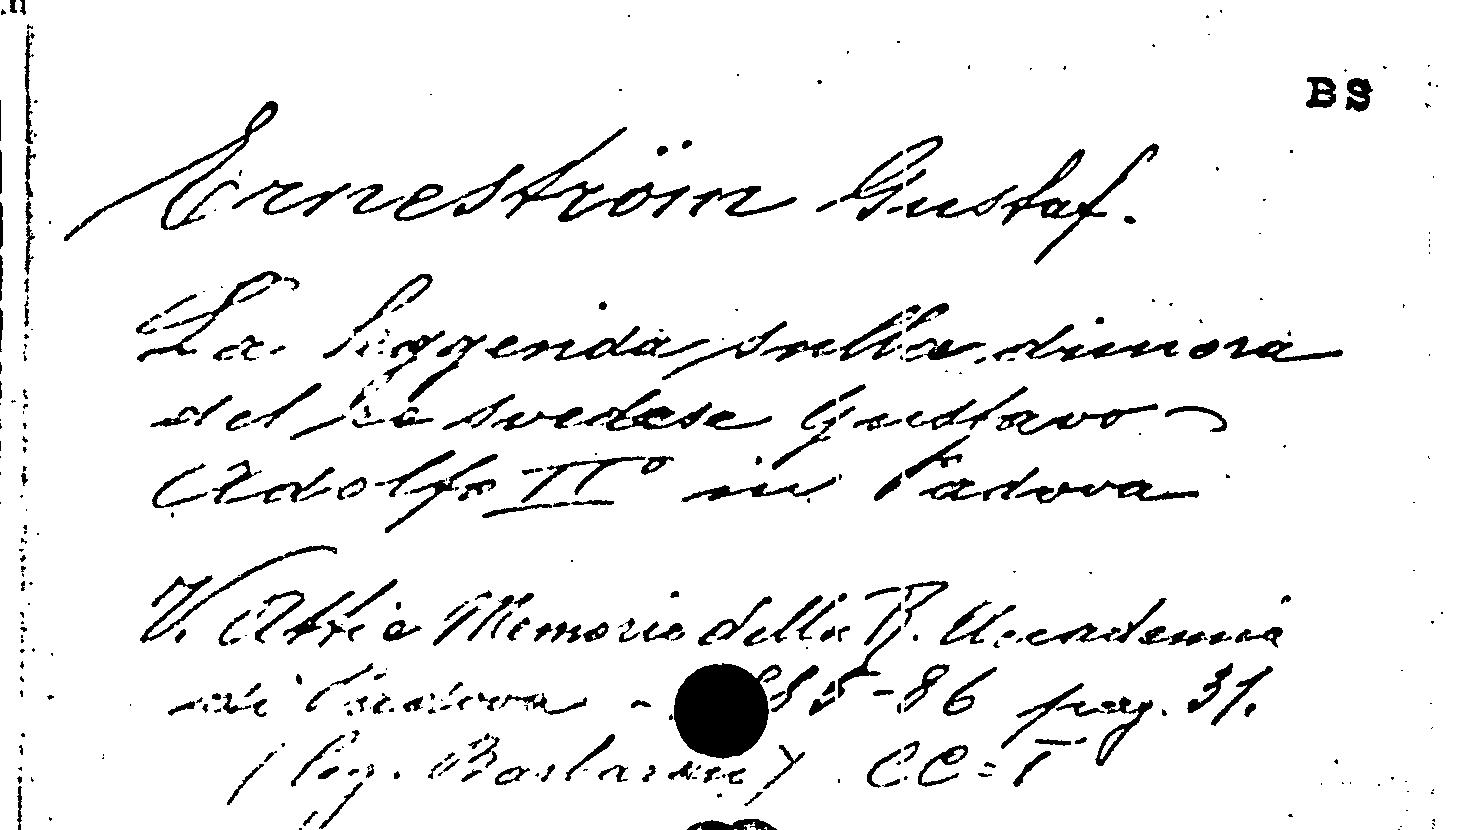 BS
Erneström Gustaf.
La leggenda sulla dimora
del Re svedese Gustavo
Adolfo IIº in Padova
V. Atti e Memorie della R. Accademia
di Padova - 885-86 pag. 31.
(Leg. Barbarani) CC=T